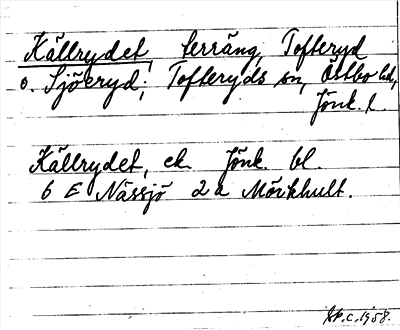 Källrydet, terräng, Tofteryd
o. Sjöeryd; Tofteryds sn, Östbo hd,
Jönk. l.
Källrydet, ek. Jönk. bl.
6 E Nässjö 2 a Mörkhult.
1958.